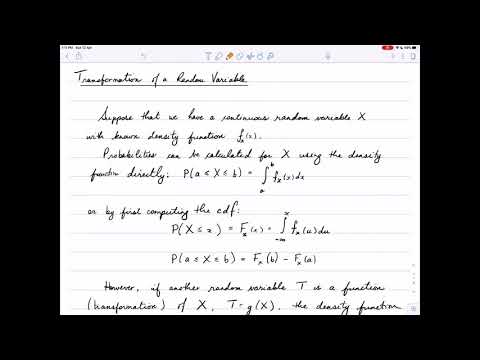 Transformation of a Random Variable
Suppose that we have a continuous random variable X
with known density function f_X(x).
Probabilities can be calculated for X using the density
function directly: P(a ≤ X ≤ b) = ∫_a^b f_X(x)dx
or by first computing the cdf:
P(X ≤ x) = F_X(x) = ∫_{-∞}^x f_X(u)du
P(a ≤ X ≤ b) = F_X(b) - F_X(a)
However, if another random variable T is a function
(transformation) of X, T = g(X), the density function